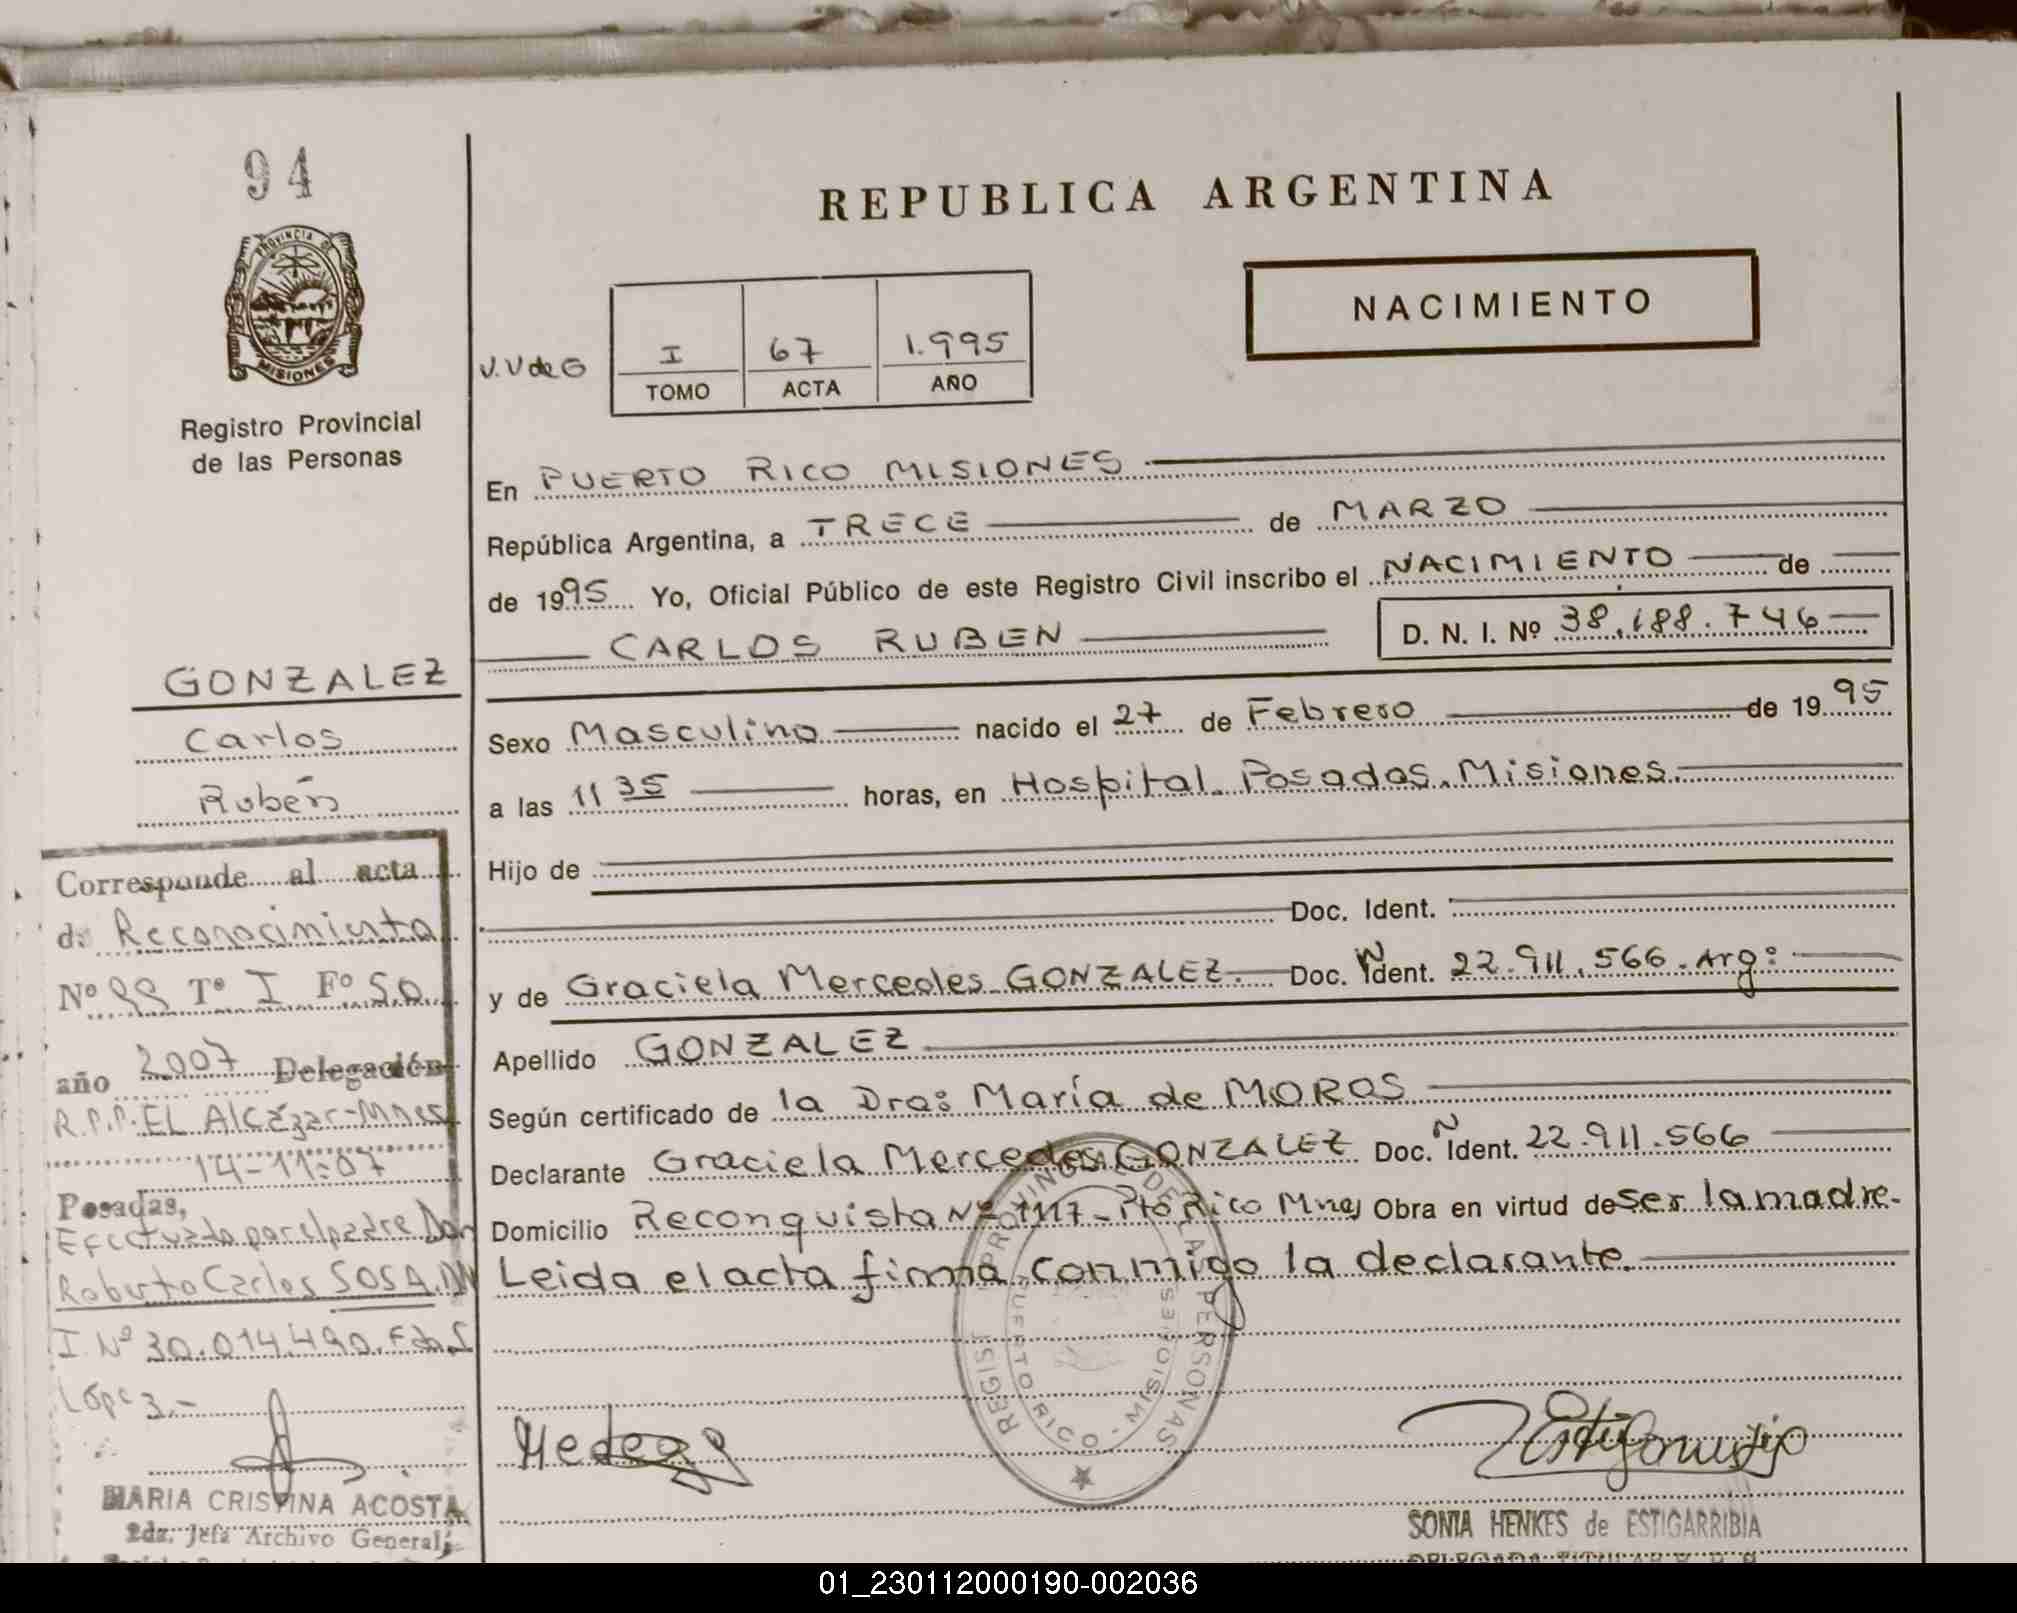 94
PROVINCIA DE
MISIONES
Registro Provincial
de las Personas
GONZALEZ
Carlos
Rubén
Corresponde al acta
de Reconocimiento
Nº 99 Tº I Fº 50
año 2007 Delegación
R.P.P. EL Alcázar-Mnes
14-11-07
Posadas,
Efectuado por el padre Don
Roberto Carlos SOSA. DN
I. Nº 30.014.490. Fdo. S
López.-
MARIA CRISTINA ACOSTA
2da. Jefa Archivo General
REPUBLICA ARGENTINA
NACIMIENTO
V.V de G
I 67 1.995
TOMO ACTA AÑO
En PUERTO RICO MISIONES
República Argentina, a TRECE de MARZO
de 1995 Yo, Oficial Público de este Registro Civil inscribo el NACIMIENTO de
CARLOS RUBEN D. N. I. Nº 38.188.746
Sexo Masculino nacido el 27 de Febrero de 1995
a las 11 35 horas, en Hospital. Posadas. Misiones.
Hijo de
Doc. Ident.
y de Graciela Mercedes GONZALEZ. Doc. N Ident. 22.911.566. Arg:
Apellido GONZALEZ
Según certificado de la Dra: María de MOROS
Declarante Graciela Mercedes GONZALEZ Doc. N Ident. 22.911.566
Domicilio Reconquista Nº 1117-Pto Rico Mnes Obra en virtud de ser la madre.
Leida el acta firma conmigo la declarante.
REGIST. PROVINCIAL DE LAS PERSONAS
PUERTO RICO - MISIONES
SONIA HENKES de ESTIGARRIBIA
DELEGADA TITULAR
01_230112000190-002036